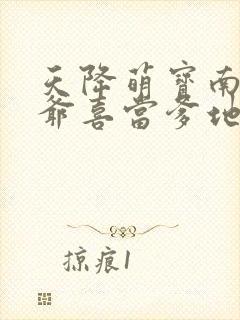 天降萌宝南
爷喜当爹地
掠痕1